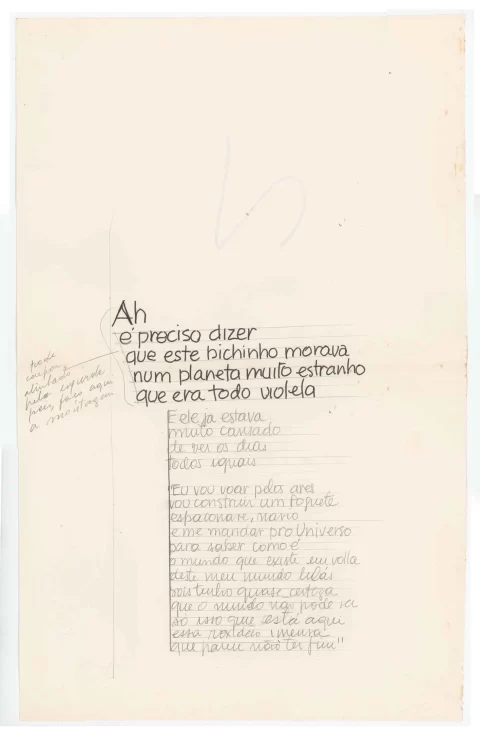 Ah
é preciso dizer
que este bichinho morava
num planeta muito estranho
que era todo violeta
E ele já estava
muito cansado
de ver os dias
todos iguais
"Eu vou voar pelos ares
vou construir um foguete
espaçonave, navio
e me mandar pro Universo
para saber como é
o mundo que existe em volta
deste meu mundo lilás
pois tenho quase certeza
que o mundo não pode ser
só isso que está aqui
essa roxidão imensa
que parece não ter fim"
pode
alinhado
pela esquerda
aqui
a montagem